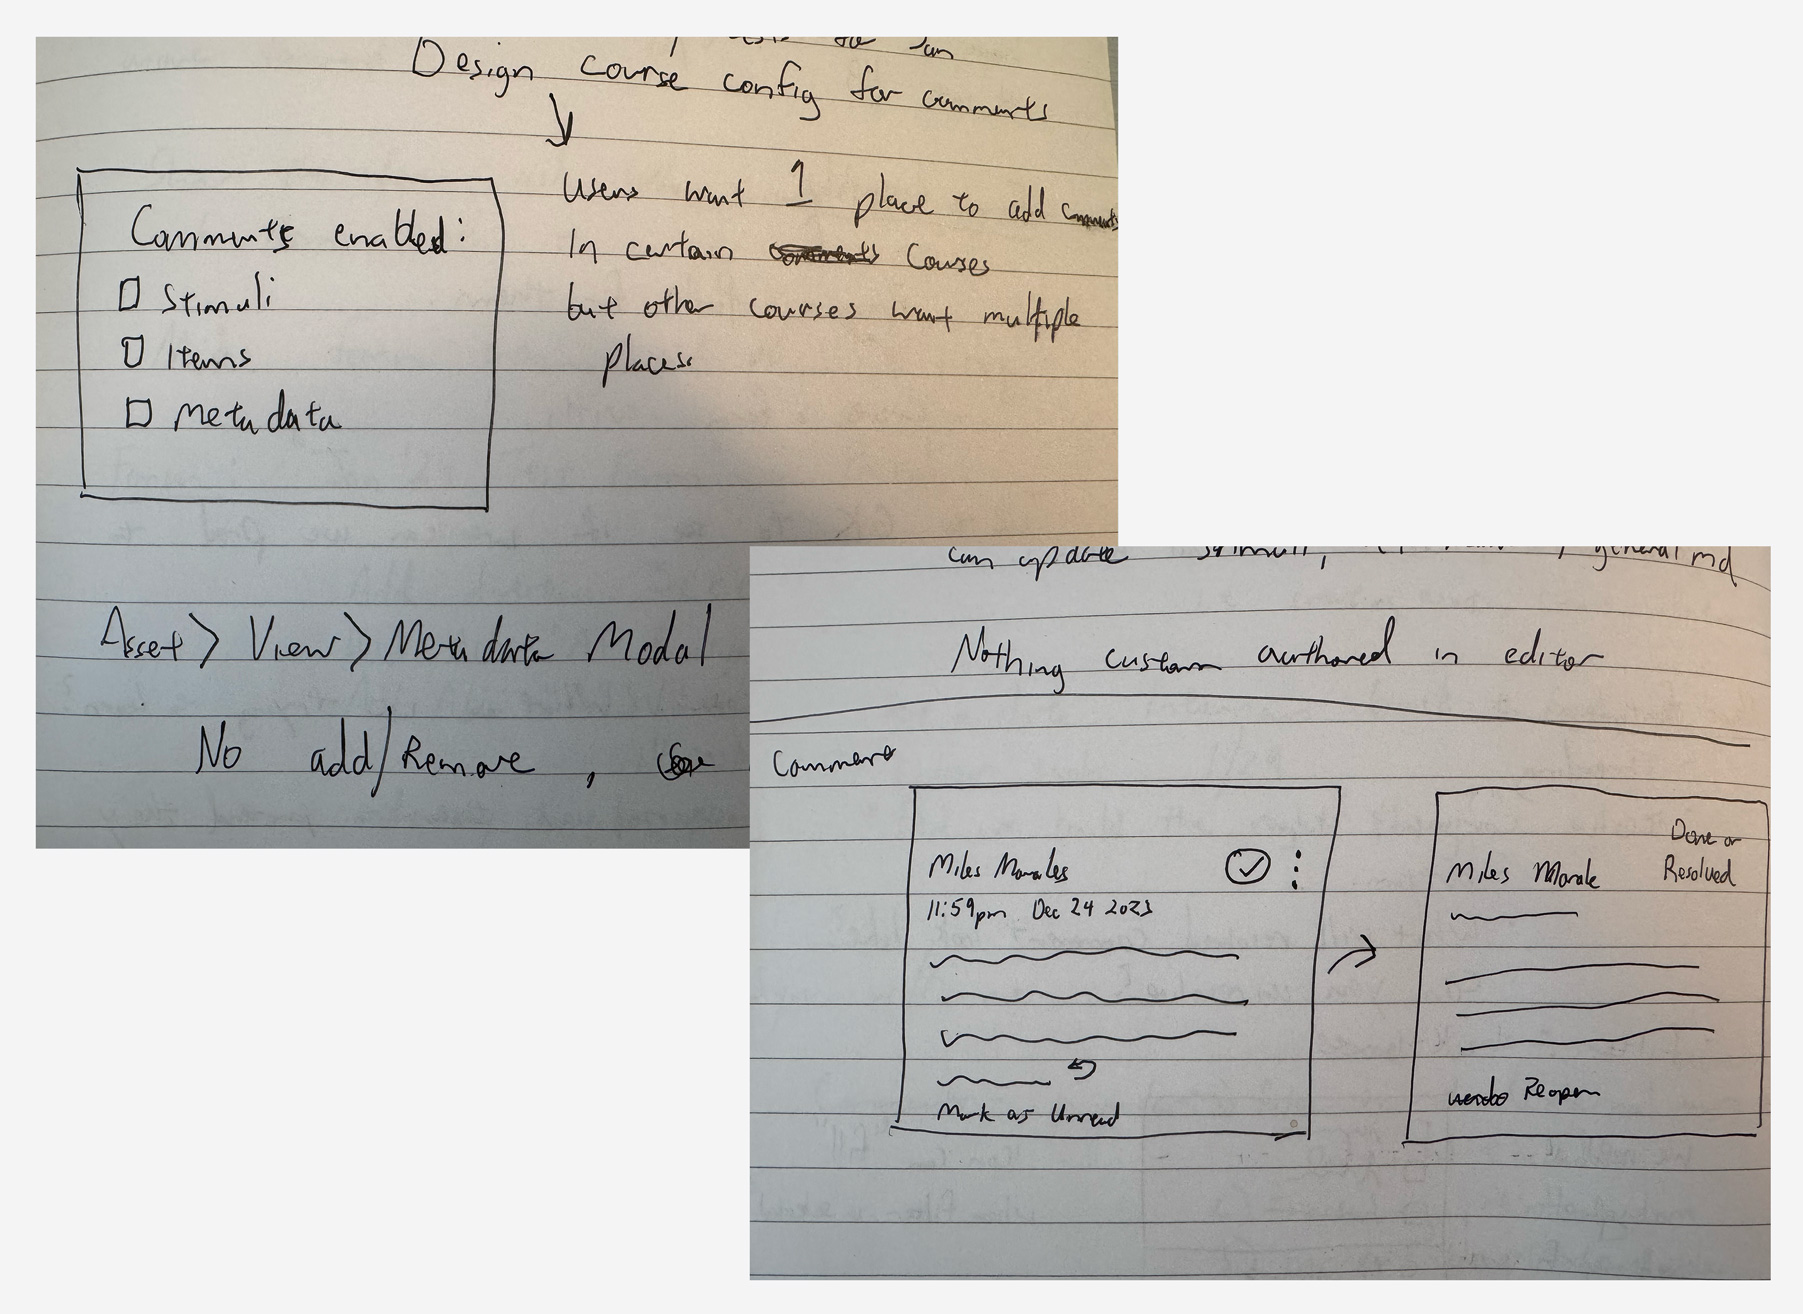 Design course config for comments
Users want 1 place to add comments
In certain courses
but other courses want multiple
places.
Comments enabled:
Stimuli
Items
Metadata
Asset > View > Metadata Modal
No add/Remove,
can update stimuli, general md
Nothing custom authored in editor
Comment
Miles Morales
11:59pm Dec 24 2023
Mark as Unread
Done or
Resolved
Miles Morale
Reopen